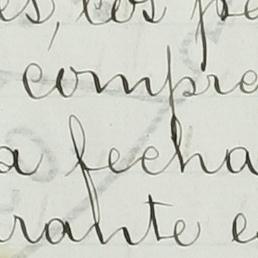 es, los pe
compre
a fecha
rante e